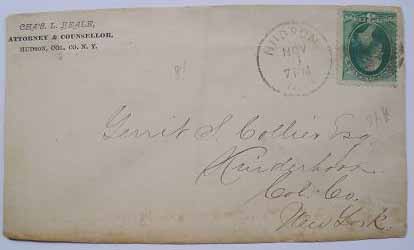 CHAS. L. BEALE,
ATTORNEY & COUNSELLOR,
HUDSON, COL. CO. N. Y.
HUDSON
NOV
1
7PM
Gerrit S. Collier Esq
Kinderhook
Col. Co.
New York